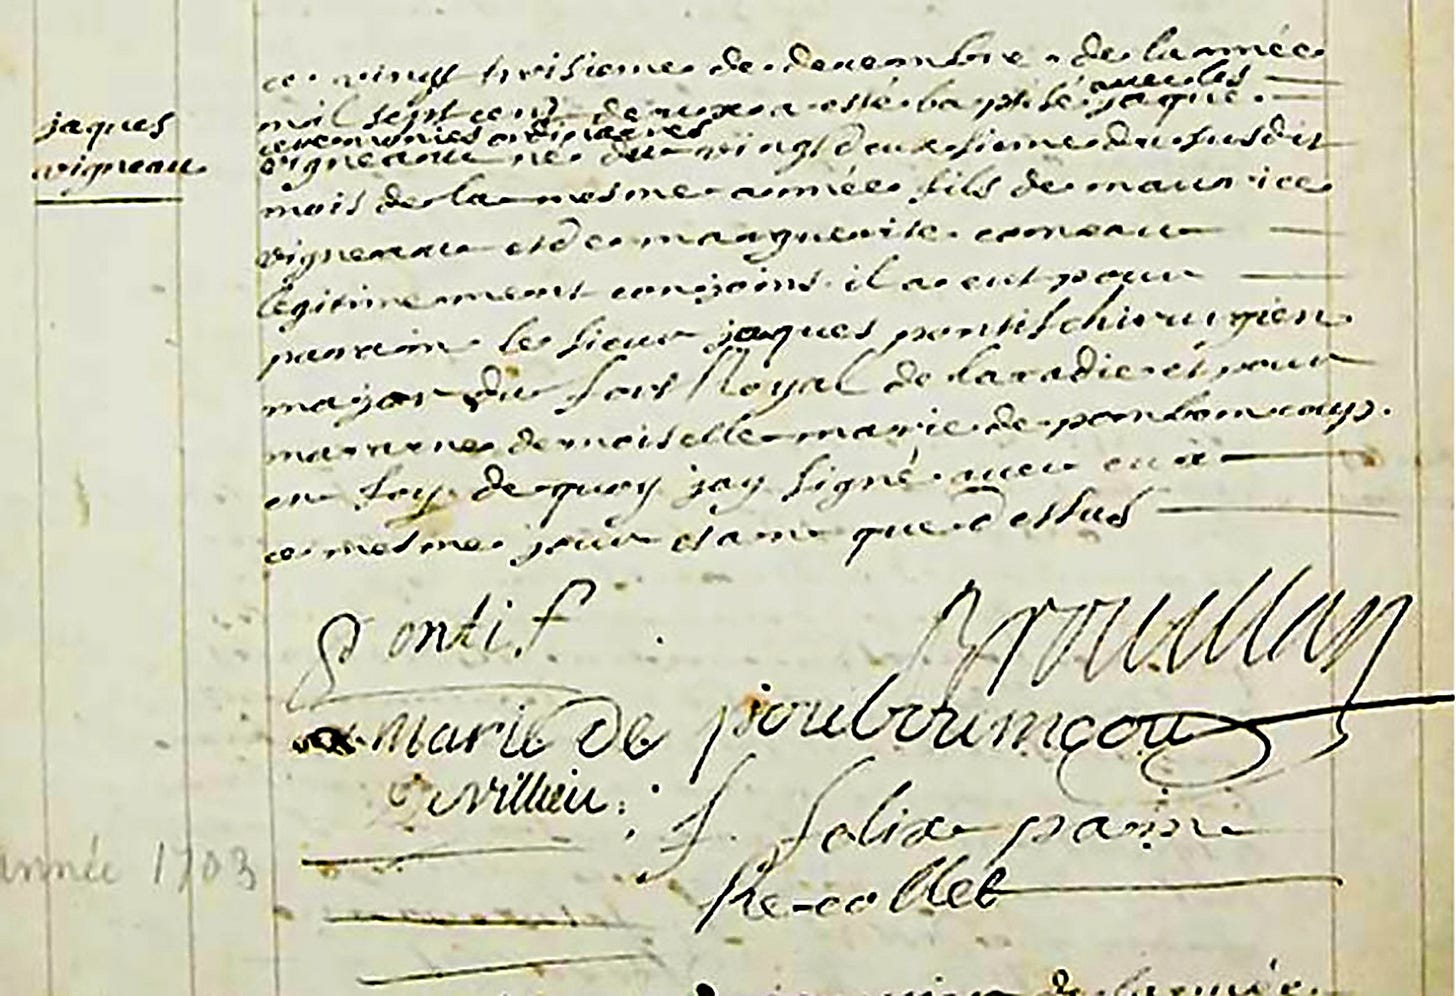 jaques
vigneau
ce vingt troisieme de decembre de lannée
mil sept cent deux a esté baptisé avec les
ceremonies ordinaires jaque
vigneau né du vingt deuxsieme du susdit
mois de la mesme année fils de maurice
vigneau et de marguerite comeau
legitimement conjoins il a eut pour
parain le sieur jaques pontif chirurgien
major du fort Royal de lacadie et pour
maraine demoiselle marie de poubomcoup.
en foy de quoy jay signé avec eux
ce mesme jour et an que dessus
Pontif
Brouillan
marie de pouboumcou
villieu
f. felix pain
Recollet
année 1703
de lannée